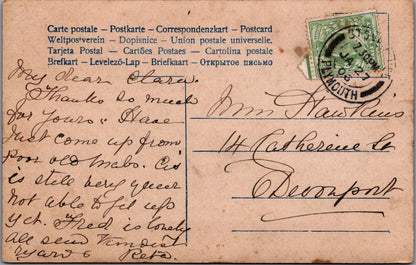 Carte postale - Postkarte - Correspondenzkart - Postcard
Weltpostverein - Dopisnice - Union postale universelle.
Tarjeta Postal - Cartões Postaes - Cartolina postale
Brefkart - Levelező-Lap - Briefkaart - Открытое письмо
PLYMOUTH
JA 27
My dear Clara.
Thanks so much
for yours. Have
just come up from
poor old mabs. Cis
is still very queer
not able to
yet. Fred is lonely
all send kindest
Reta.
Hawkins
14 Catherine St
Devonport